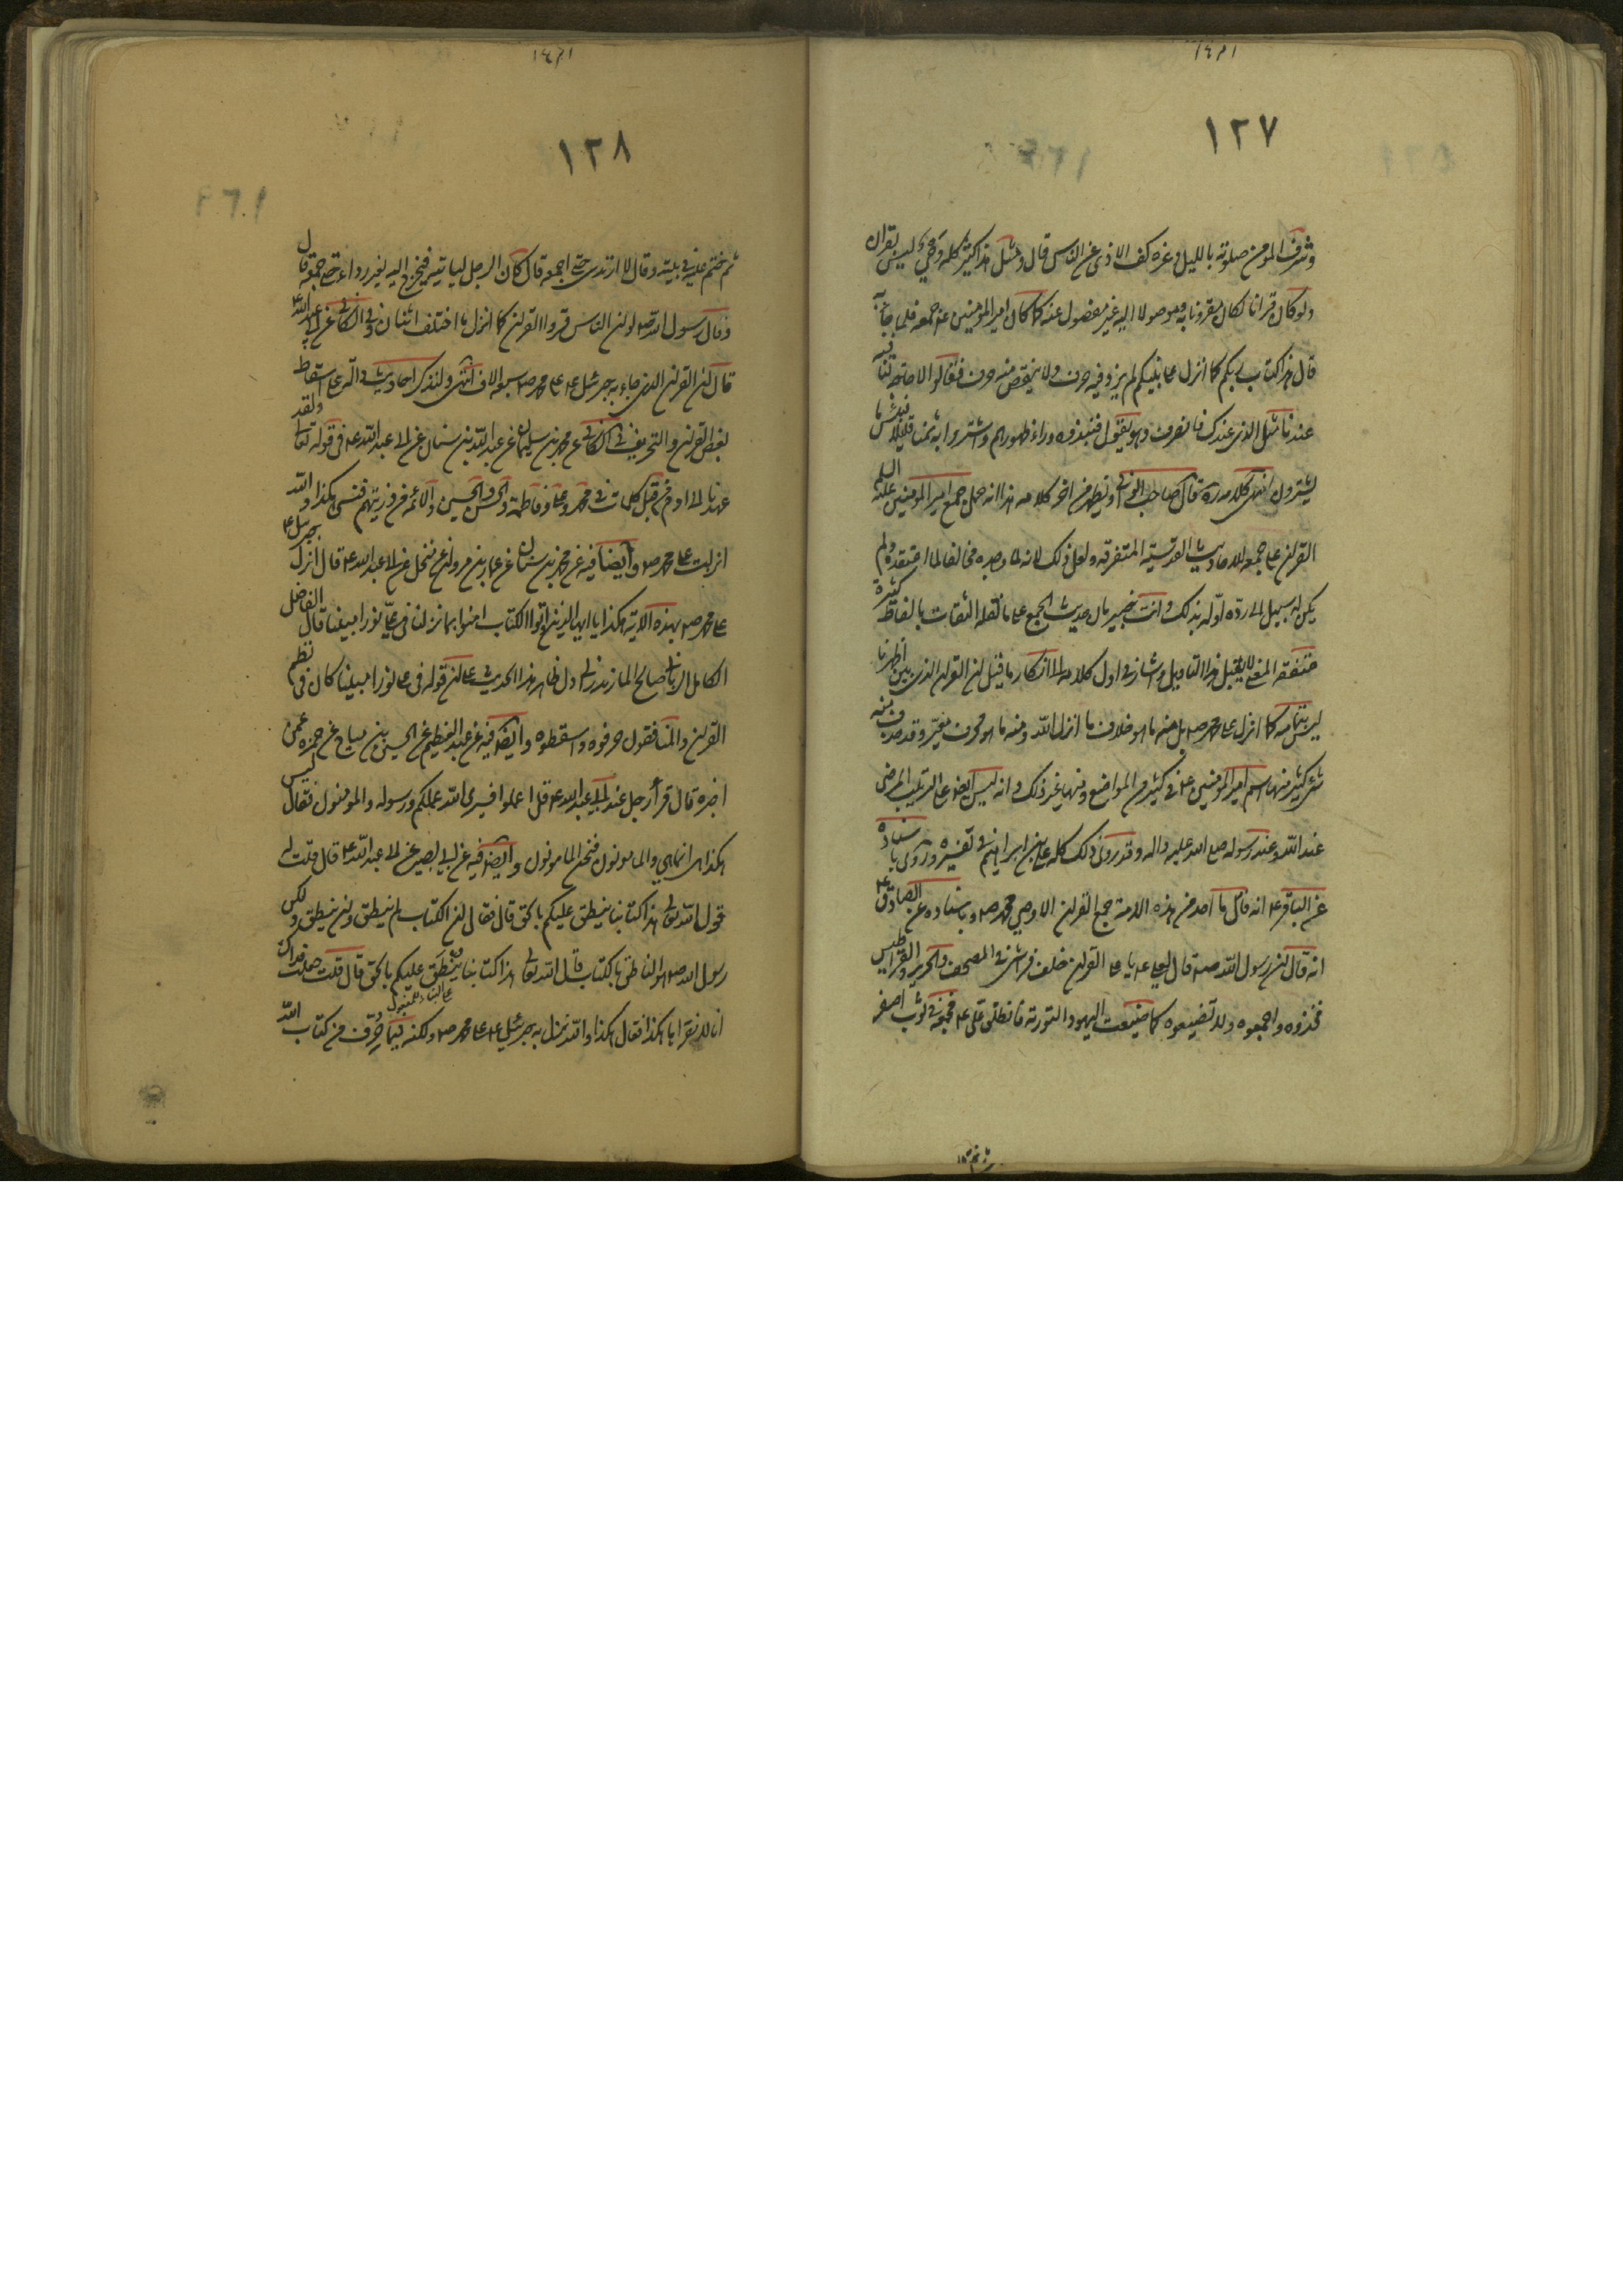 ١٢٧
وشرف المؤمن صلوته بالليل وعزه كف الاذى عن الناس قال ومثل هذا كثير كله وحي ليس بقران
ولو كان قرانا لكان مقرونا به وموصولا اليه غير مفصول عنه كما كان امير المؤمنين ع جمعه فلما جاء به
قال هذا كتاب ربكم كما انزل على نبيكم لم يزد فيه حرف ولا ينقص منه حرف فقالوا لا حاجة لنا فيه
عندنا مثل الذى عندك فانصرف وهو يقول فنبذوه وراء ظهورهم واشتروا به ثمنا قليلا فبئس ما
يشترون انتهى كلامه ره قال صاحب الوافى ويظهر من اخر كلامه هذا انه حمل جمع امير المؤمنين عليه السلم
القرآن على جمعه للاحاديث القدسية المتفرقة ولعل ذلك لانه لما وجده مخالفا لما اعتقده ولم
يكن له سبيل الى رده اوله بذلك وانت خبير بان حديث الجمع على ما نقله الثقات بالفاظ كثيرة
متفقة المعنى لا يقبل هذا التاويل واشار فى اول كلامه الى انكار ما قيل ان القرآن الذى بين اظهرنا
ليس بتمامه كما انزل على محمد ص بل منه ما هو خلاف ما انزل الله ومنه ما هو محرف مغير وقد حذف منه
شئ كثير منها اسم امير المؤمنين ع فى كثير من المواضع ومنها غير ذلك وانه ليس ايضا على الترتيب المرضى
عند الله وعند رسوله صلى الله عليه واله وقد روى ذلك كله على بن ابراهيم فى تفسيره وروى باسناده
عن الباقر ع انه قال ما احد من هذه الامة جمع القرآن الا وصى محمد ص وباسناده عن الصادق ع
انه قال ان رسول الله ص قال لعلى ع يا على القرآن خلف فراشى فى المصحف والحرير والقراطيس
فخذوه واجمعوه ولا تضيعوه كما ضيعت اليهود التورية فانطلق على ع فجمعه فى ثوب اصفر
١٢٨
ثم ختم عليه فى بيته وقال لا ارتدى حتى اجمعه قال كان الرجل لياتيه فيخرج اليه بغير رداء حتى جمعه قال
وقال رسول الله ص لو ان الناس قرؤا القرآن كما انزل ما اختلف اثنان وفى الكافى عن ابى عبد الله ع
قال ان القرآن الذى جاء به جبرئيل ع على محمد ص سبعة الاف انتهى ولنذكر احاديث دالة على اسقاط
بعض القرآن والتحريف فى الكافى عن محمد بن سليمان عن عبد الله بن سنان عن ابى عبد الله ع فى قوله تعالى ولقد
عهدنا الى ادم من قبل كلمات فى محمد وعلى وفاطمة والحسن والحسين والائمة من ذريتهم فنسى هكذا والله
انزلت على محمد ص وايضا فيه عن محمد بن سنان عن عمار بن مروان عن منخل عن ابى عبد الله ع قال انزل جبرئيل ع
على محمد ص بهذه الاية هكذا يا ايها الذين اوتوا الكتاب امنوا بما نزلنا فى على نورا مبينا قال الفاضل
الكامل الربانى صالح المازندرانى دل ظاهر هذا الحديث على ان قوله فى على نورا مبينا كان فى نظم
القرآن والمنافقون حرفوه واسقطوه وايضا فيه عن عبد العظيم عن الحسين بن مياح عن حمزه عمن
اخبره قال قرأ رجل عند ابى عبد الله ع قل اعملوا فسيرى الله عملكم ورسوله والمؤمنون فقال ليس
هكذا هى انما هى والمامونون فنحن المامونون وايضا فيه عن ابى بصير عن ابى عبد الله ع قال قلت له
قول الله تعالى هذا كتابنا ينطق عليكم بالحق قال فقال ان الكتاب لم ينطق ولن ينطق ولكن
رسول الله ص هو الناطق بالكتاب قال الله تعالى هذا كتابنا ينطق عليكم بالحق قال قلت جعلت فداك
على البناء للمفعول
انا لا نقراها هكذا فقال هكذا والله نزل به جبرئيل ع على محمد ص ولكنه فيما حرف من كتاب الله